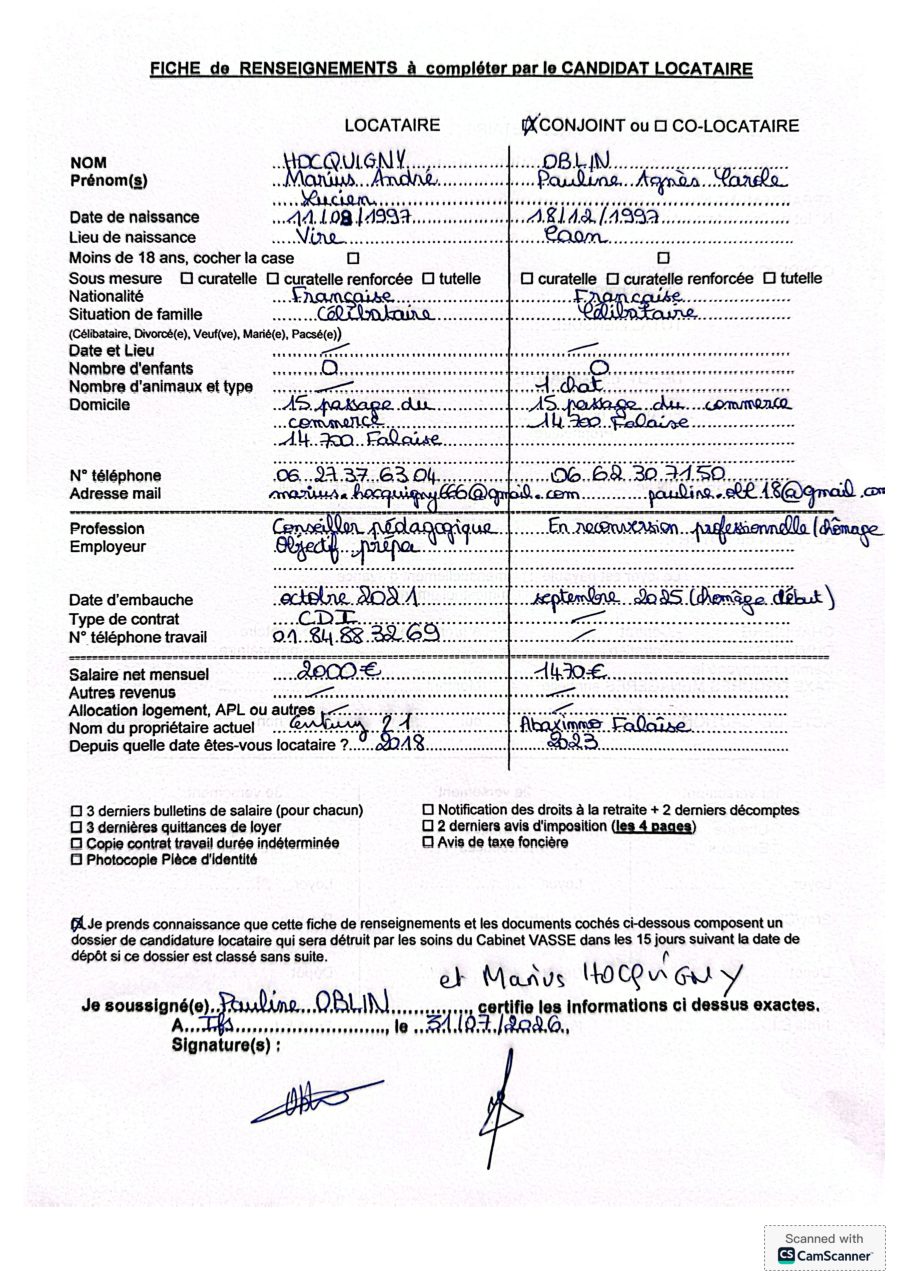 FICHE de RENSEIGNEMENTS à compléter par le CANDIDAT LOCATAIRE
LOCATAIRE ☒ CONJOINT ou ☐ CO-LOCATAIRE
NOM HOCQUIGNY OBLIN
Prénom(s) Marius André Pauline Agnès Carole
Lucien
Date de naissance 11/08/1997 18/12/1997
Lieu de naissance Vire Caen
Moins de 18 ans, cocher la case ☐ ☐
Sous mesure ☐ curatelle ☐ curatelle renforcée ☐ tutelle ☐ curatelle ☐ curatelle renforcée ☐ tutelle
Nationalité Française Française
Situation de famille Célibataire Célibataire
(Célibataire, Divorcé(e), Veuf(ve), Marié(e), Pacsé(e))
Date et Lieu
Nombre d'enfants 0 0
Nombre d'animaux et type 1 chat
Domicile 15 passage du 15 passage du commerce
commerce 14 700 Falaise
14 700 Falaise
N° téléphone 06 27 37 63 04 06 62 30 71 50
Adresse mail marius.hocquigny666@gmail.com pauline.obl18@gmail.com
Profession Conseiller pédagogique En reconversion professionnelle/chômage
Employeur Objectif prépa
Date d'embauche octobre 2021 septembre 2025 (chomâge début)
Type de contrat CDI
N° téléphone travail 01 84 88 32 69
Salaire net mensuel 2000€ 1470€
Autres revenus
Allocation logement, APL ou autres
Nom du propriétaire actuel Century 21 Abaximmo Falaise
Depuis quelle date êtes-vous locataire ? 2018 2023
☐ 3 derniers bulletins de salaire (pour chacun) ☐ Notification des droits à la retraite + 2 derniers décomptes
☐ 3 dernières quittances de loyer ☐ 2 derniers avis d'imposition (les 4 pages)
☐ Copie contrat travail durée indéterminée ☐ Avis de taxe foncière
☐ Photocopie Pièce d'identité
☒ Je prends connaissance que cette fiche de renseignements et les documents cochés ci-dessous composent un
dossier de candidature locataire qui sera détruit par les soins du Cabinet VASSE dans les 15 jours suivant la date de
dépôt si ce dossier est classé sans suite.
et Marius HOCQUIGNY
Je soussigné(e) Pauline OBLIN, certifie les informations ci dessus exactes.
A Ifs, le 31/07/2026,
Signature(s) :
Scanned with
CS CamScanner